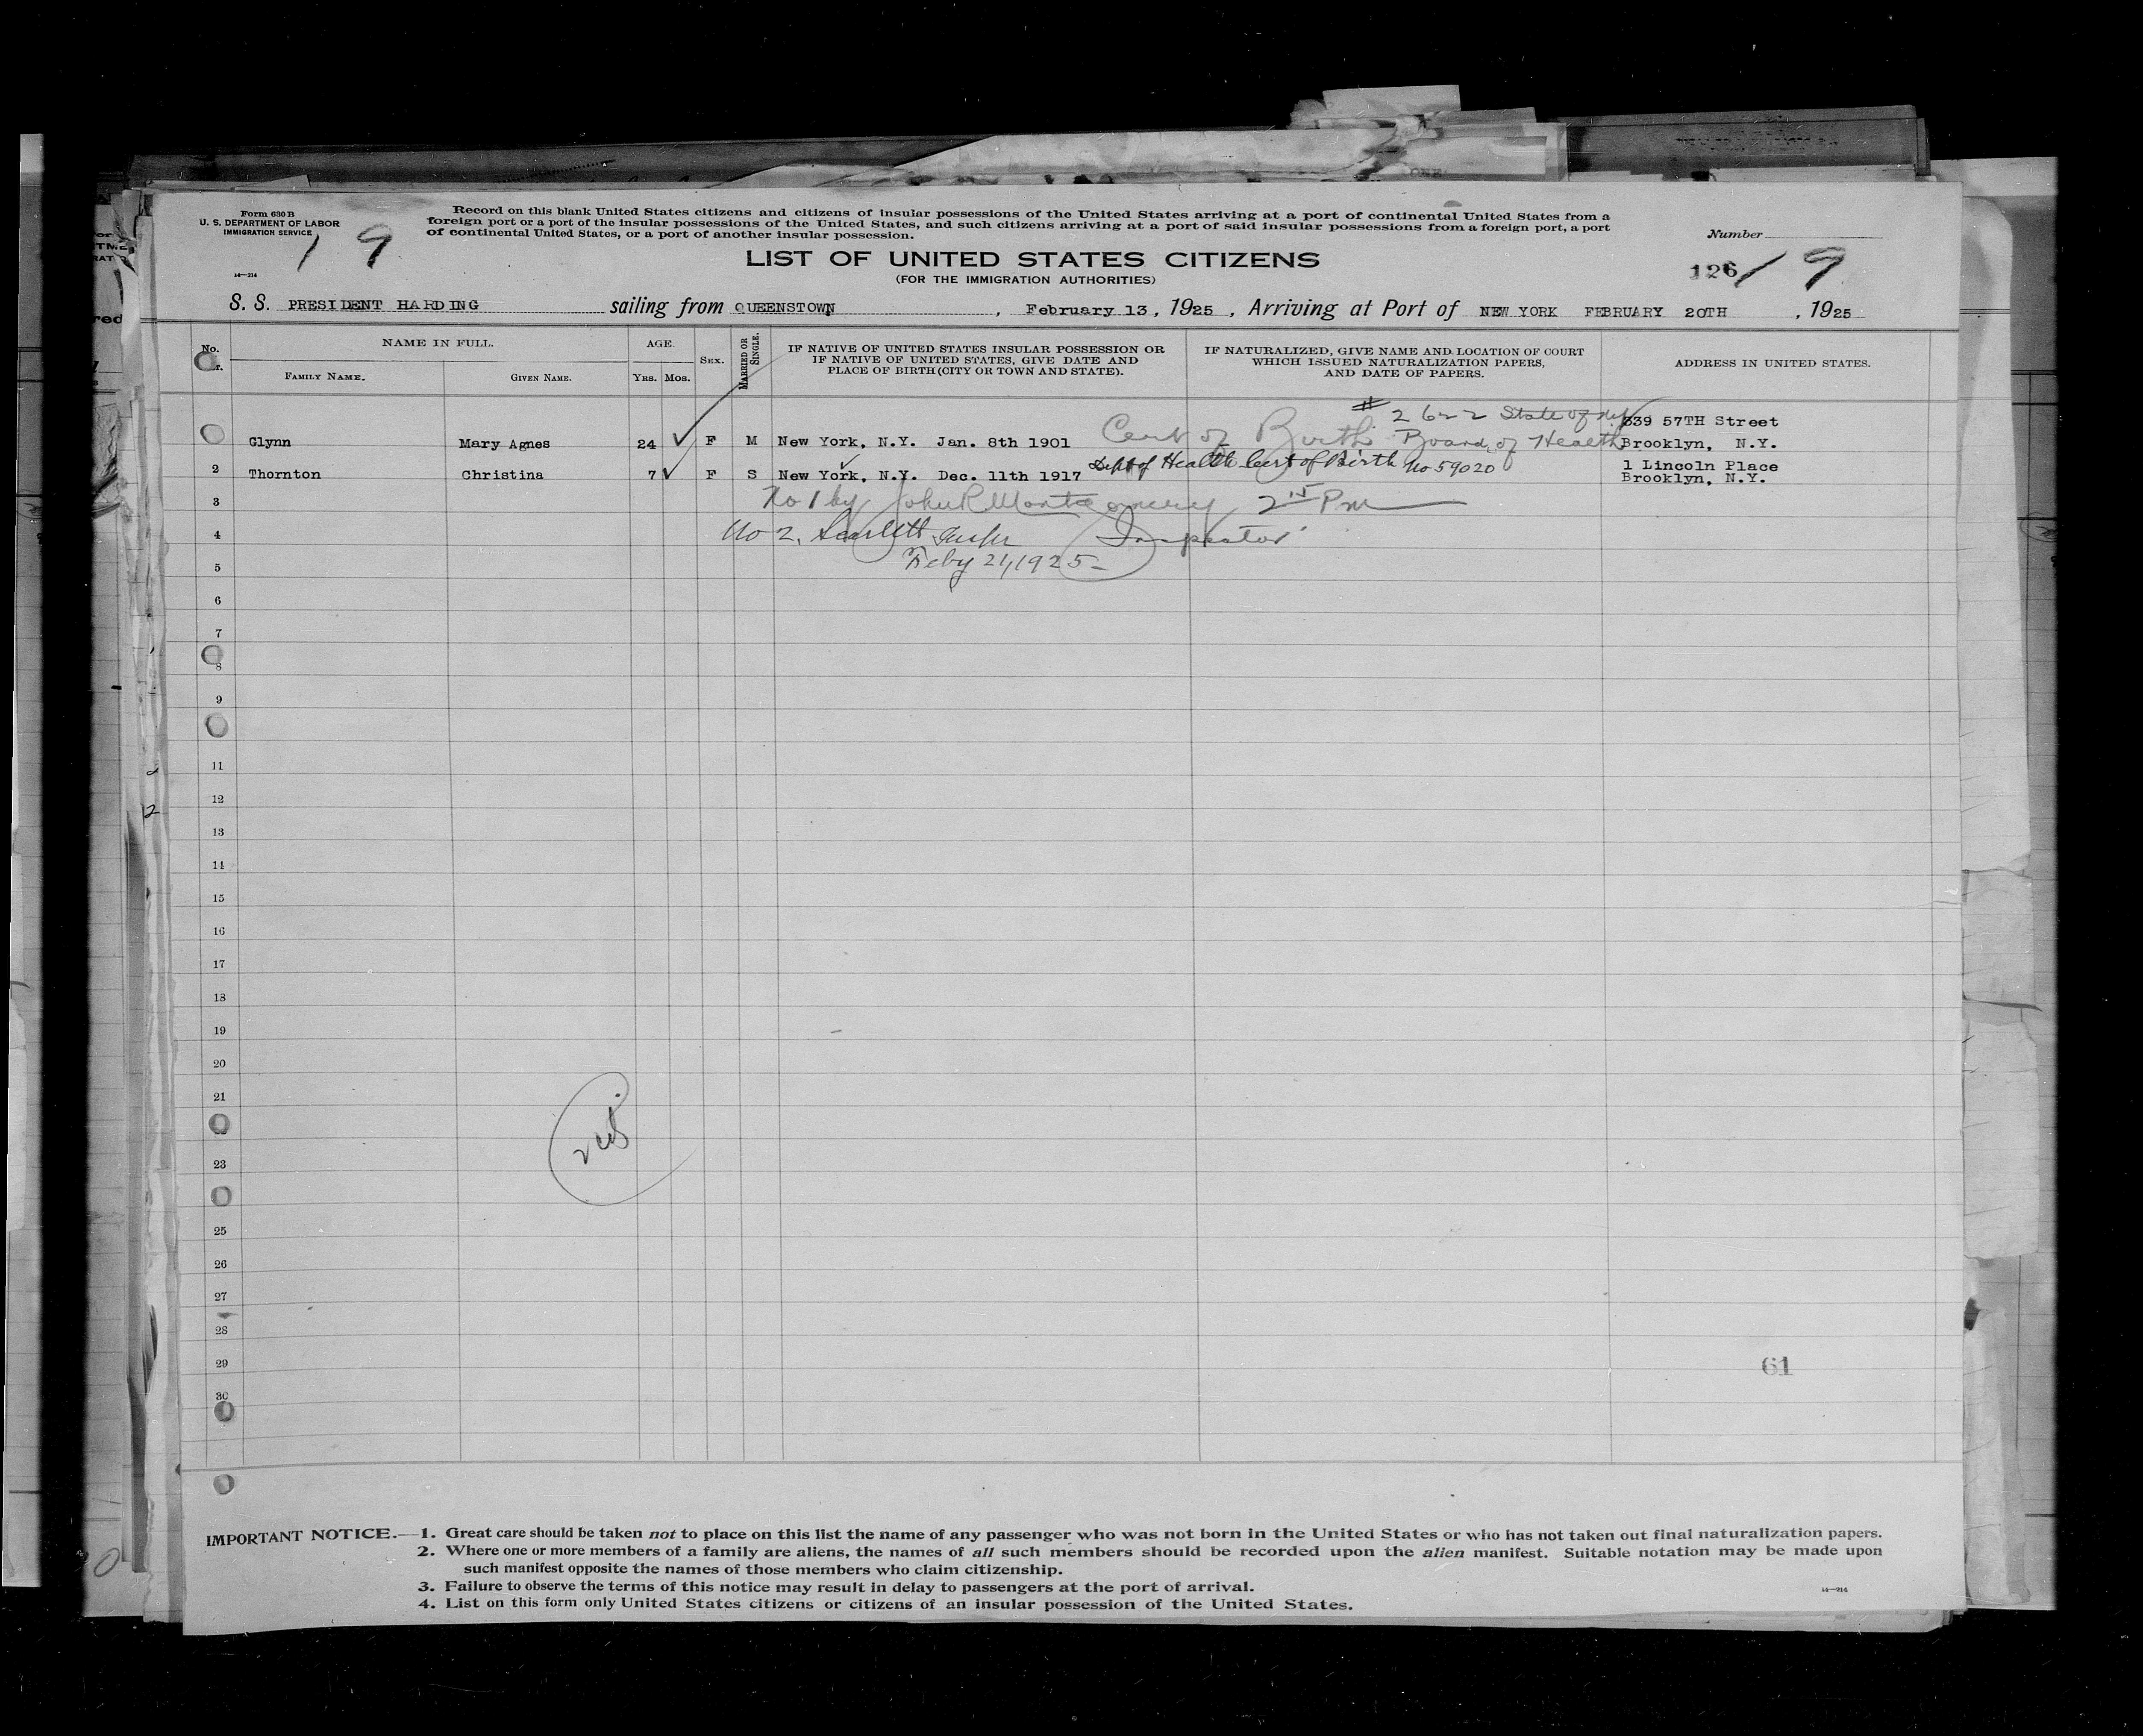 Form 630 B
U. S. DEPARTMENT OF LABOR
IMMIGRATION SERVICE
14—214
1 9
Record on this blank United States citizens and citizens of insular possessions of the United States arriving at a port of continental United States from a
foreign port or a port of the insular possessions of the United States, and such citizens arriving at a port of said insular possessions from a foreign port, a port
of continental United States, or a port of another insular possession.
Number
LIST OF UNITED STATES CITIZENS
(FOR THE IMMIGRATION AUTHORITIES)
126 / 9
S. S. PRESIDENT HARDING sailing from QUEENSTOWN, February 13, 1925, Arriving at Port of NEW YORK FEBRUARY 20TH, 1925
No. NAME IN FULL. AGE. SEX. MARRIED OR SINGLE. IF NATIVE OF UNITED STATES INSULAR POSSESSION OR IF NATIVE OF UNITED STATES, GIVE DATE AND PLACE OF BIRTH (CITY OR TOWN AND STATE). IF NATURALIZED, GIVE NAME AND LOCATION OF COURT WHICH ISSUED NATURALIZATION PAPERS, AND DATE OF PAPERS. ADDRESS IN UNITED STATES.
FAMILY NAME. GIVEN NAME. YRS. MOS.
# 2622 State of 339 57TH Street
Glynn Mary Agnes 24 F M New York, N.Y. Jan. 8th 1901 Cert of Birth Board of Health Brooklyn, N.Y.
2 Thornton Christina 7 F S New York, N.Y. Dec. 11th 1917 Dept of Health Cert of Birth No 59020 1 Lincoln Place
Brooklyn, N.Y.
3 No 1 by John R Montgomery 2 Pm
4 No 2. Scarlett Inspector
5 Feby 21, 1925
6
7
8
9
11
12
13
14
15
16
17
18
19
20
21
23
25
26
27
28
29
61
30
IMPORTANT NOTICE.—1. Great care should be taken not to place on this list the name of any passenger who was not born in the United States or who has not taken out final naturalization papers.
2. Where one or more members of a family are aliens, the names of all such members should be recorded upon the alien manifest. Suitable notation may be made upon
such manifest opposite the names of those members who claim citizenship.
3. Failure to observe the terms of this notice may result in delay to passengers at the port of arrival.
14—214
4. List on this form only United States citizens or citizens of an insular possession of the United States.